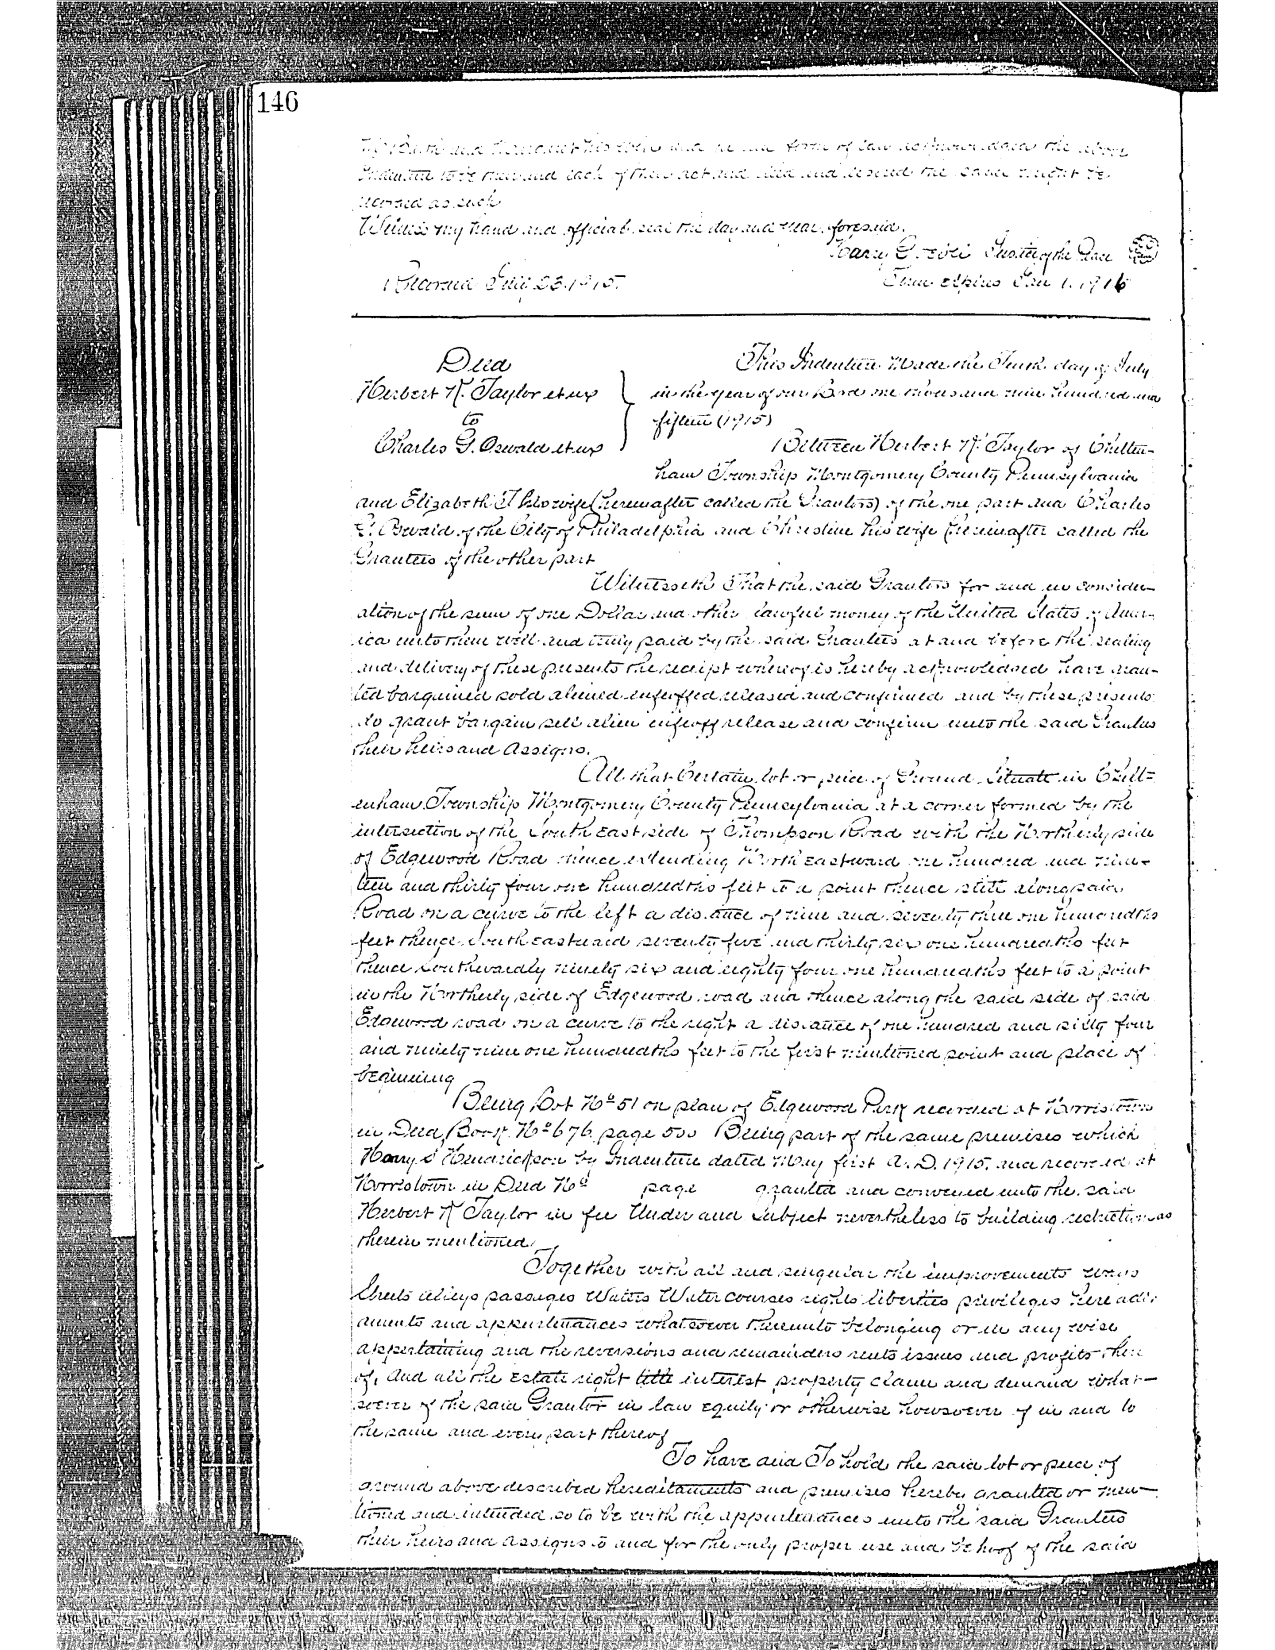 146
and each of their act and deed and desired the same might be
recorded as such
Witness my hand and official seal the day and year aforesaid.
Harry G. Justice of the Peace
Recorded July 23, 1915. Time expires Jan 1, 1916
Deed
Herbert N. Taylor et ux
to
Charles G. Oswald et ux
This Indenture Made the day of July
in the year of our Lord one thousand nine hundred and
fifteen (1915)
Between Herbert N. Taylor of Chelten-
ham Township Montgomery County Pennsylvania
and Elizabeth T his wife (hereinafter called the Grantors) of the one part and Charles
G. Oswald of the City of Philadelphia and Christine his wife (hereinafter called the
Grantees of the other part
Witnesseth That the said Grantors for and in consider-
ation of the sum of one Dollar and other lawful money of the United States of Amer-
ica unto them well and truly paid by the said Grantees at and before the sealing
and delivery of these presents the receipt whereof is hereby acknowledged have gran-
ted bargained sold aliened enfeoffed released and confirmed and by these presents
do grant bargain sell alien enfeoff release and confirm unto the said Grantees
their heirs and assigns.
All that Certain lot or piece of Ground Situate in Chelt-
enham Township Montgomery County Pennsylvania at a corner formed by the
intersection of the South East side of Thompson Road with the Northerly side
of Edgewood Road thence extending North eastward one hundred and nine-
teen and thirty four one hundredths feet to a point thence still along said
Road on a curve to the left a distance of nine and seventy three one hundredths
feet thence South eastward seventy five and thirty six one hundredths feet
thence Southwardly ninety six and eighty four one hundredths feet to a point
in the Northerly side of Edgewood road and thence along the said side of said
Edgewood road on a curve to the right a distance of one hundred and sixty four
and ninety nine one hundredths feet to the first mentioned point and place of
beginning
Being Lot No 51 on plan of Edgewood Park recorded at Norristown
in Deed Book No 676 page 500 Being part of the same premises which
Harry S Hendrickson by Indenture dated May first A.D. 1915, and recorded at
Norristown in Deed No page granted and conveyed unto the said
Herbert N Taylor in fee Under and Subject nevertheless to building restrictions
therein mentioned.
Together with all and singular the improvements ways
Streets alleys passages Waters Water courses rights liberties privileges heredit-
aments and appurtenances whatsoever thereunto belonging or in any wise
appertaining and the reversions and remainders rents issues and profits there
of, And all the estate right title interest property claim and demand what-
soever of the said Grantor in law equity or otherwise howsoever of in and to
the same and every part thereof
To have and To hold the said lot or piece of
ground above described hereditaments and premises hereby granted or men-
tioned and intended so to be with the appurtenances unto the said Grantees
their heirs and assigns to and for the only proper use and behoof of the said